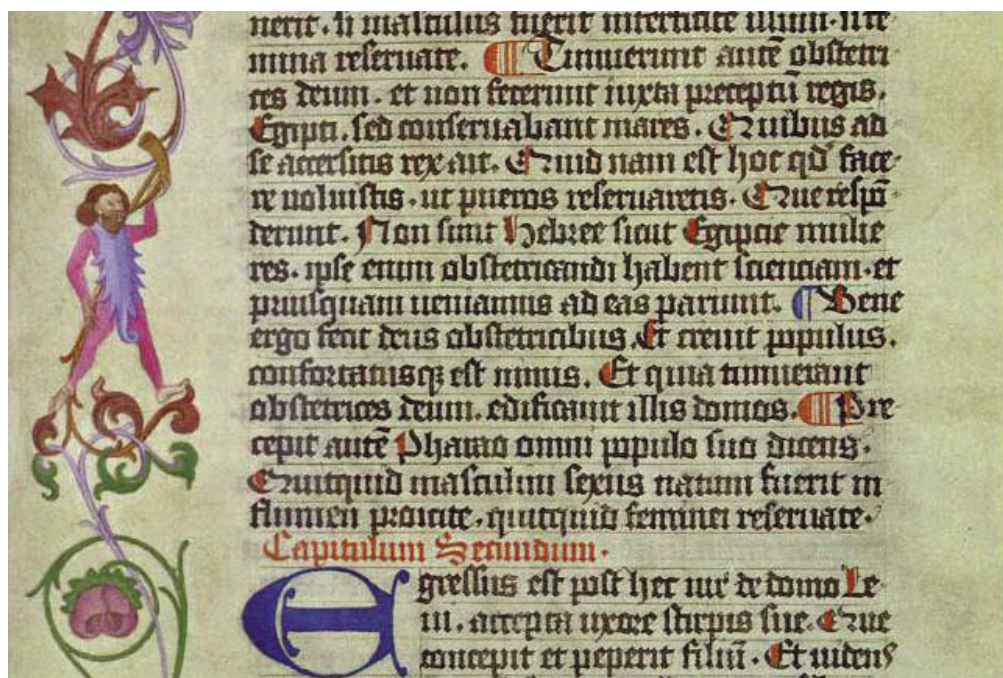 nerit. si masculus fuerit interficite illum. si fe
mina reseruate. Timuerunt autē obstetri
ces deum. et non fecerunt iuxta preceptū regis.
Egipti. sed conseruabant mares. Quibus ad
se accersitis rex ait. Quid nam est hoc qd̄ face-
re uoluistis. ut pueros reseruaretis. Que respō-
derunt. Non sunt Hebree sicut Egipcie mulie
res. ipse enim obstetricandi habent scienciam. et
priusquam ueniamus ad eas pariunt. Bene
ergo fecit deus obstetricibus. Et creuit populus.
confortatusqȝ est nimis. Et quia timuerant
obstetrices deum. edificauit illis domos. Pre-
cepit autē Pharao omni populo suo dicens.
Quitquid masculini sexus natum fuerit in
flumen proicite. quitquid feminei reseruate.
Capitulum Secundum.
Egressus est post hec uir de domo Le
ui. accepta uxore stirpis sue. Que
concepit et peperit filiū. Et uidens